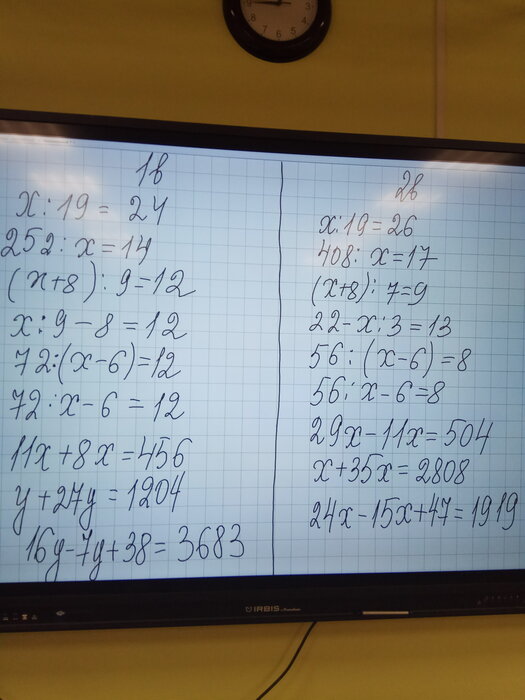 1в
x:19 = 24
252:x=14
(x+8):9=12
x:9-8=12
72:(x-6)=12
72:x-6=12
11x+8x=456
y+27y=1204
16y-7y+38=3683
2в
x:19=26
408:x=17
(x+8):7=9
22-x:3=13
56:(x-6)=8
56:x-6=8
29x-11x=504
x+35x=2808
24x-15x+47=1919
IRBIS